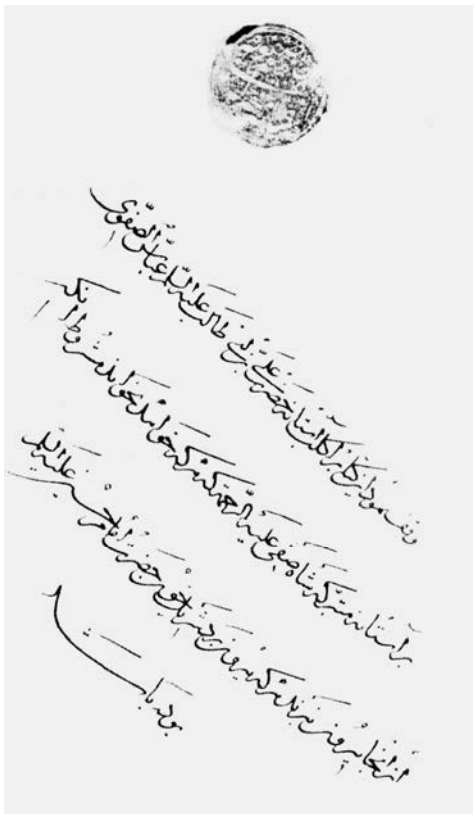 وقف نمود این کتاب را کلب آستانه حضرت علی بن ابی طالب علیه السلم عباس الصفوی
بر آستانه متبرکه شاه صفی علیه الرحمه که هر که خواهد بخواند مشروط آنکه
از آنجا بیرون نبرند و هر که بیرون برد شریک خون حضرت امام حسین علیه السلم
بوده باشد